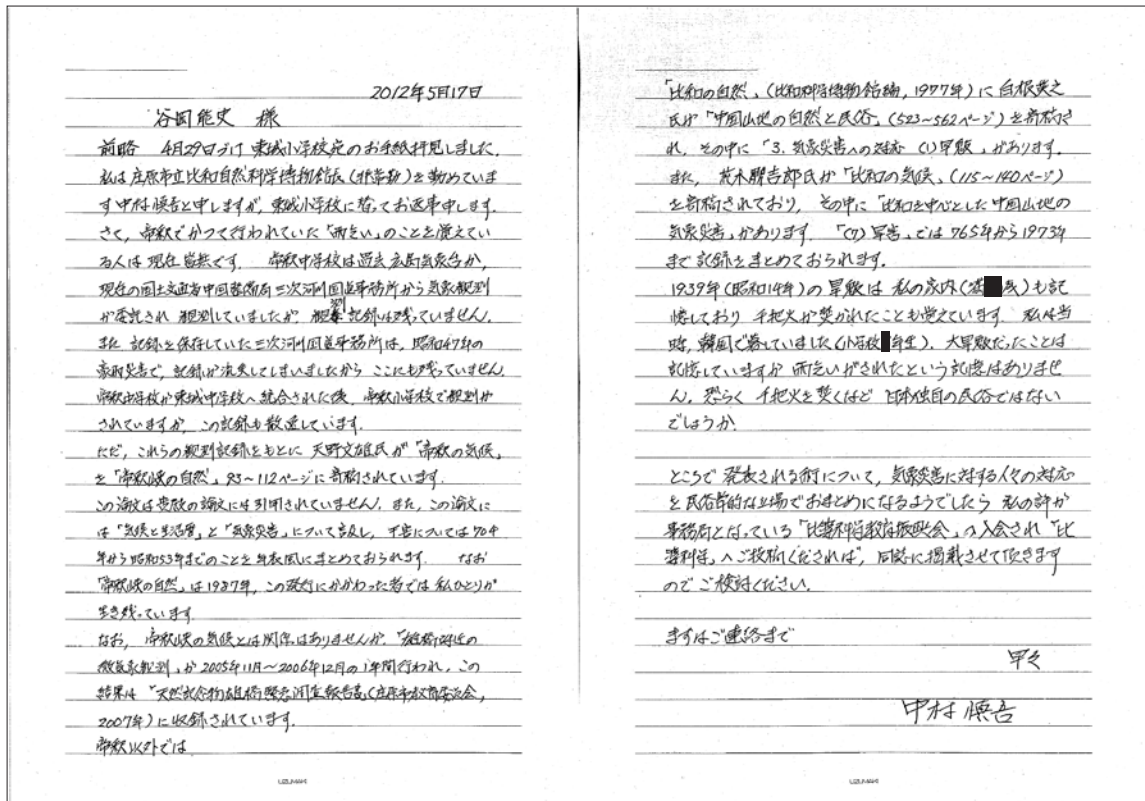 2012年5月17日
谷岡能史 様
前略 4月29日づけ 東城小学校宛のお手紙拝見しました。
私は庄原市立比和自然科学博物館長(非常勤)を勤めていま
す中村慎吾と申しますが、東城小学校に替ってお返事申します。
さて、帝釈でかつて行われていた「雨乞い」のことを覚えてい
る人は現在皆無です。 帝釈中学校は過去広島気象台か、
現在の国土交通省中国整備局三次河川国道事務所から気象観測
が委託され 観測していましたが 観測記録は残っていません。
また 記録を保存していた三次河川国道事務所は、昭和47年の
豪雨災害で、記録が流失してしまいましたから ここにも残っていません。
帝釈中学校が東城中学校へ統合された後、帝釈小学校で観測が
されていますが、この記録も散逸しています。
ただ、これらの観測記録をもとに 天野文雄氏が「帝釈の気候」
を「帝釈峡の自然」93~112ページに寄稿されています。
この論文は貴殿の論文には引用されていません。また、この論文に
は「気候と生活暦」と「気象災害」について言及し、干害については704
年から昭和53年までのことを年表風にまとめておられます。 なお
「帝釈峡の自然」は1987年、この発行にかかわった者では 私ひとりが
生き残っています。
なお、帝釈峡の気候とは関係はありませんが、「雄橋附近の
微気象観測」が2005年11月~2006年12月の1年間行われ、この
結果は「天然記念物雄橋 調査報告書」(庄原市教育委員会,
2007年)に収録されています。
帝釈以外では
「比和の自然」(比和科学博物館編, 1977年)に白根英之
氏が「中国山地の自然と民俗」(523~562ページ)を寄稿さ
れ、その中に「3. 気象災害への対応 (1)旱魃」があります。
また、荒木 吉郎氏が「比和の気候」(115~140ページ)
を寄稿されており、その中に「比和を中心とした中国山地の
気象災害」があります。 「(7)旱害」では765年から1973年
まで記録をまとめておられます。
1939年(昭和14年)の旱魃は私の家内(満 歳)も記
憶しており 千把火が焚かれたことも覚えています。 私は当
時、韓国で暮していました(小学校 年生)。大旱魃だったことは
記憶していますが 雨乞いがされたという記憶はありませ
ん。恐らく 千把火を焚くなど 日本独自の民俗ではない
でしょうか。
ところで 発表される術について、気象災害に対する人々の対応
を民俗学的な立場でおまとめになるようでしたら 私の許が
事務局となっている「比婆科学教育振興会」へ入会され「比
婆科学」へご投稿くだされば、同誌に掲載させて頂きます
のでご検討ください。
まずはご連絡まで
早々
中村慎吾
UZUMAKI
UZUMAKI